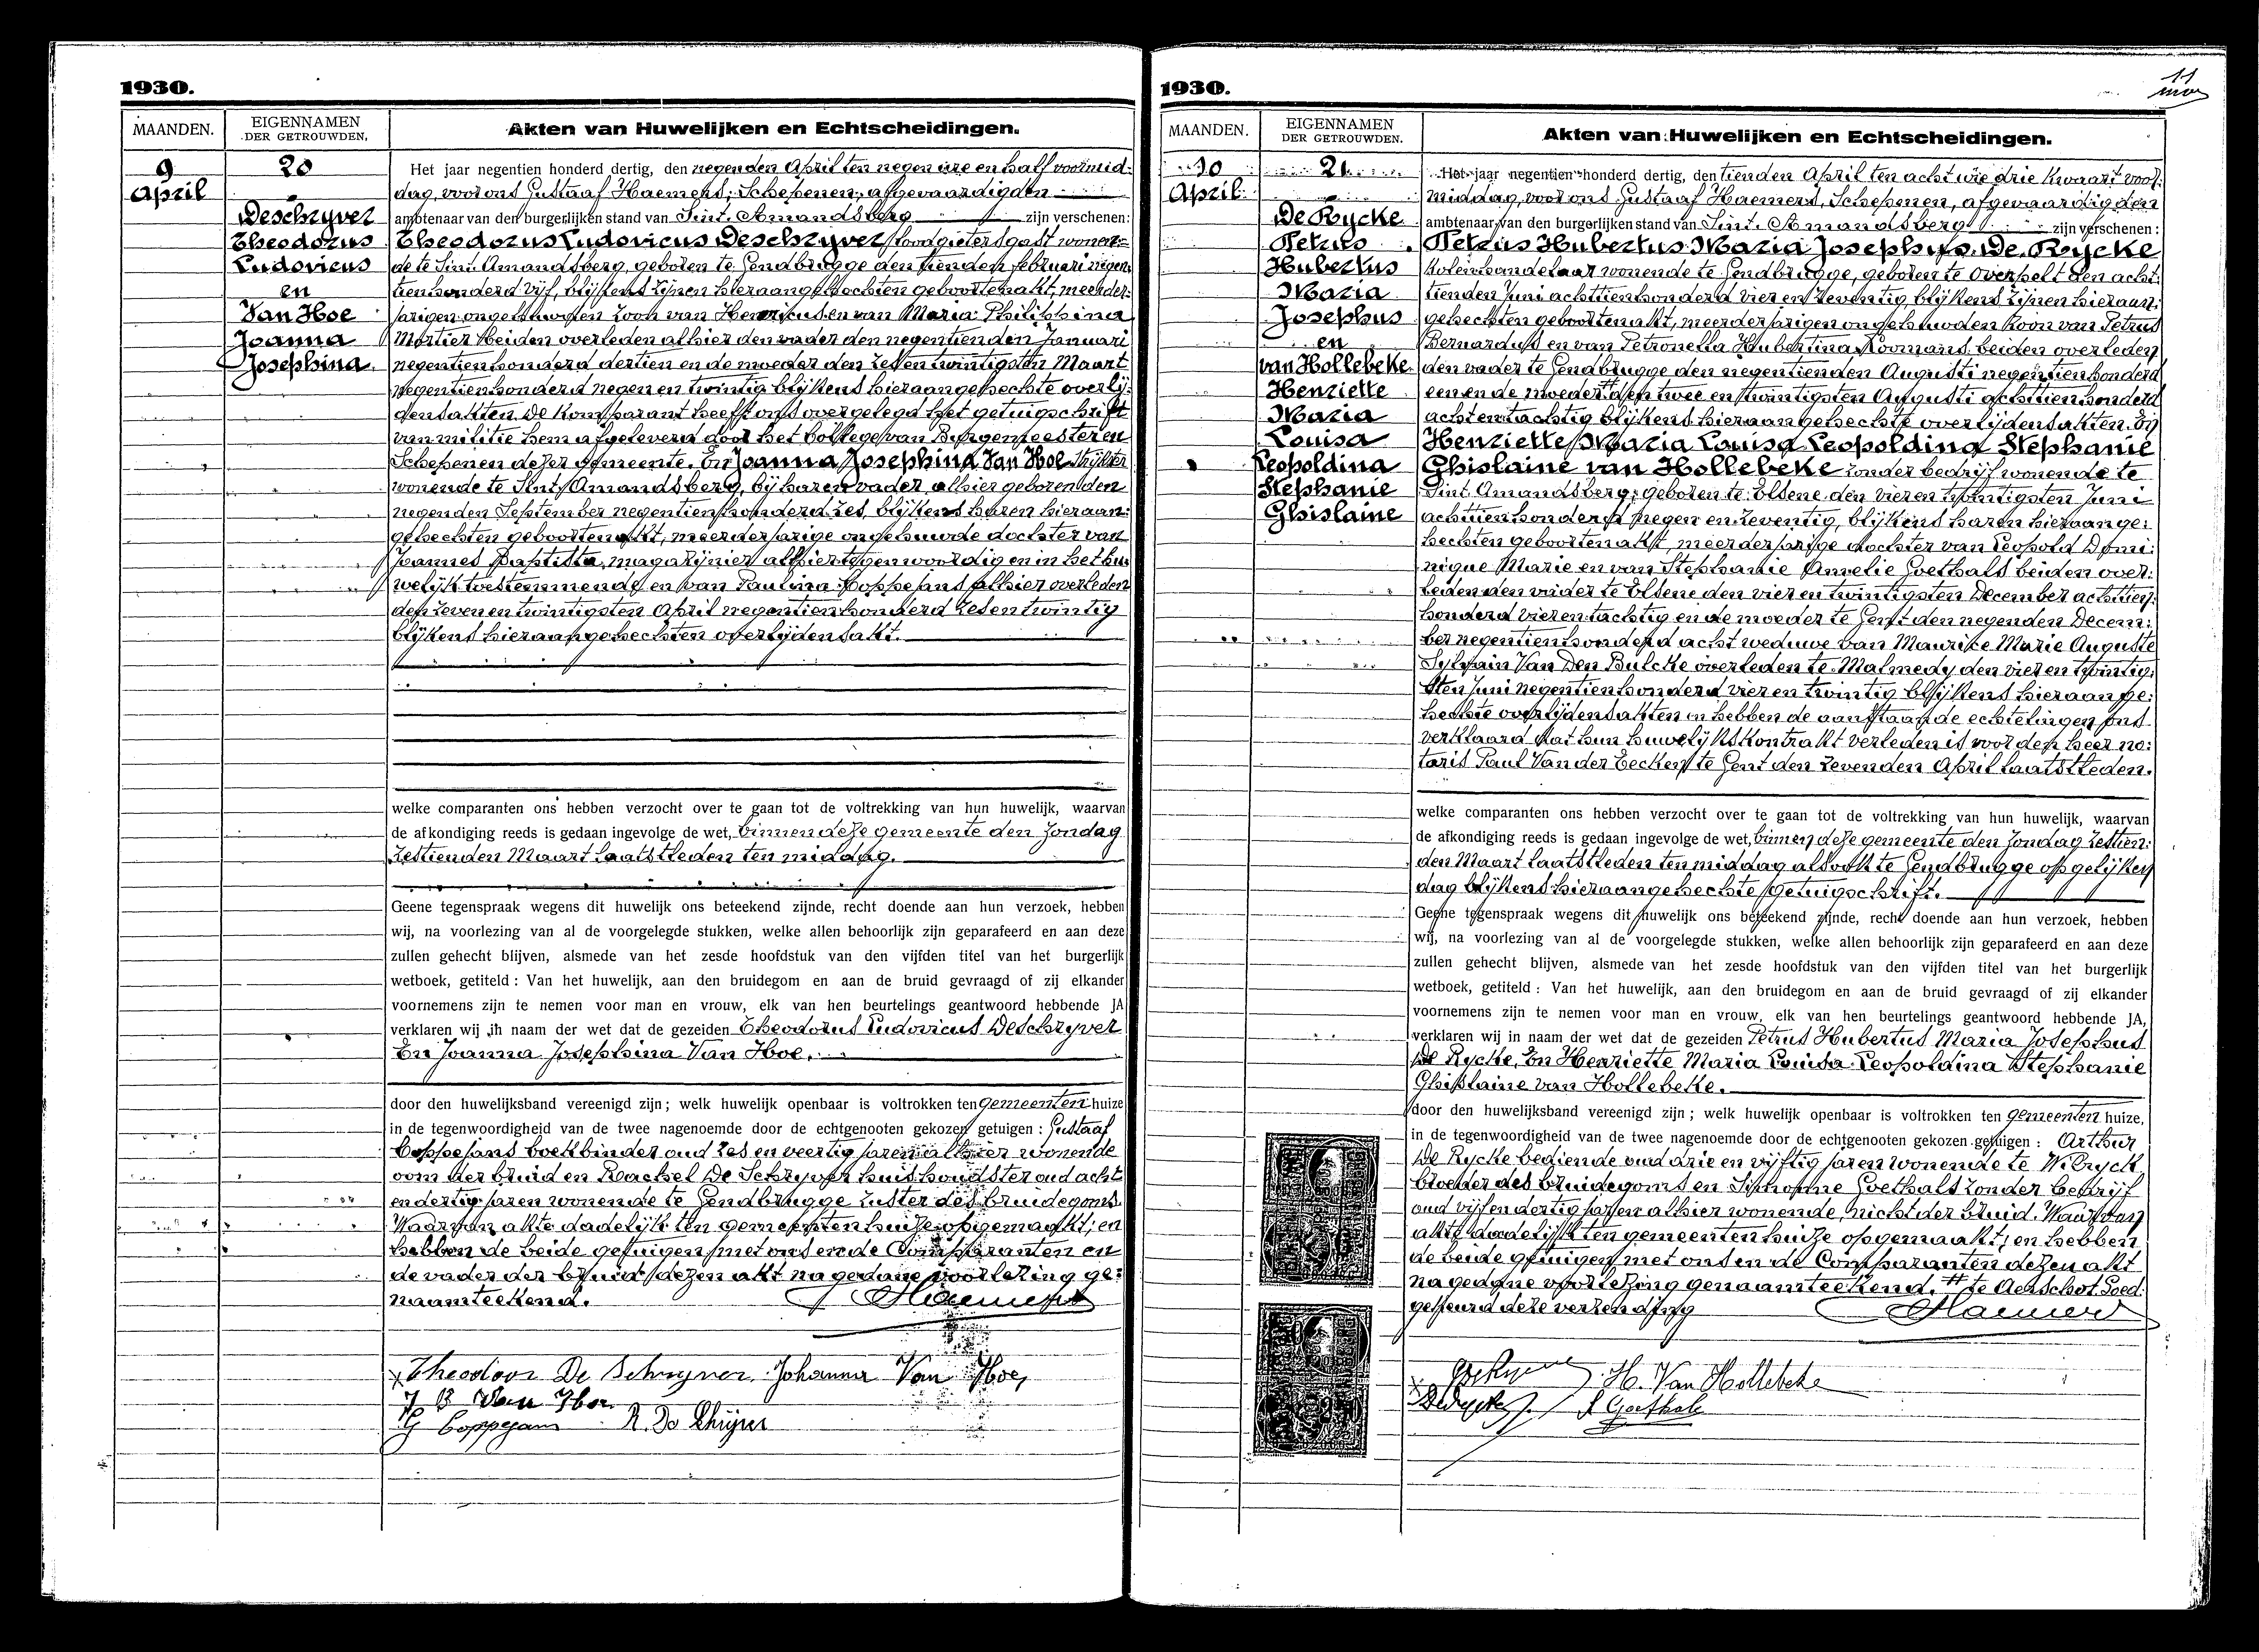 1930.
MAANDEN.
EIGENNAMEN
DER GETROUWDEN.
Akten van Huwelijken en Echtscheidingen.
9
April
20
Deschryver
Theodorus
Ludovicus
en
Van Hoe
Joanna
Josephina
Het jaar negentien honderd dertig, den negenden April ten negen ure en half voormid-
dag, voor ons Gustaaf Haemers, Schepenen, afgevaardigden
ambtenaar van den burgerlijken stand van Sint-Amandsberg zijn verschenen:
Theodorus Ludovicus Deschryver loodgietersgast wonen-
de te Sint-Amandsberg, geboren te Gendbrugge den tienden februari negen-
tienhonderd vijf, blijkens zijnen hieraangehechten geboortenakt, meerder-
jarigen ongehuwden zoon van Henricus en van Maria Philippina
Mortier beiden overleden alhier den vader den negentienden Januari
negentienhonderd dertien en de moeder den zesentwintigsten Maart
negentienhonderd negen en twintig blijkens hieraangehechte overlij-
densakten. De komparant heeft ons overgelegd het getuigschrift
van militie hem afgeleverd door het College van Burgemeester en
Schepenen dezer gemeente. En Joanna Josephina Van Hoe
wonende te Sint-Amandsberg, bij haren vader, alhier geboren den
negenden September negentienhonderd zes blijkens haren hieraan-
gehechten geboortenakt, meerderjarige ongehuwde dochter van
Joannes Baptista, magazijnier alhier tegenwoordig en in het hu-
welijk toestemmende en van Paulina Coppejans alhier overleden
den zevenentwintigsten April negentienhonderd zesentwintig
blijkens hieraangehechten overlijdensakt.
welke comparanten ons hebben verzocht over te gaan tot de voltrekking van hun huwelijk, waarvan
de afkondiging reeds is gedaan ingevolge de wet, binnen deze gemeente den Zondag
zestienden Maart laatstleden ten middag.
Geene tegenspraak wegens dit huwelijk ons beteekend zijnde, recht doende aan hun verzoek, hebben
wij, na voorlezing van al de voorgelegde stukken, welke allen behoorlijk zijn geparafeerd en aan deze
zullen gehecht blijven, alsmede van het zesde hoofdstuk van den vijfden titel van het burgerlijk
wetboek, getiteld: Van het huwelijk, aan den bruidegom en aan de bruid gevraagd of zij elkander
voornemens zijn te nemen voor man en vrouw, elk van hen beurtelings geantwoord hebbende JA
verklaren wij in naam der wet dat de gezeiden Theodorus Ludovicus Deschryver
En Joanna Josephina Van Hoe.
door den huwelijksband vereenigd zijn; welk huwelijk openbaar is voltrokken ten gemeenten huize
in de tegenwoordigheid van de twee nagenoemde door de echtgenooten gekozen getuigen: Gustaaf
Coppejans boekbinder oud zes en veertig jaren alhier wonende
oom der bruid en Rachel De Schryver huishoudster oud acht
en dertig jaren wonende te Gendbrugge zuster des bruidegoms.
Waarvan akte dadelijk ten gemeenten huize opgemaakt; en
hebben de beide getuigen met ons en de Comparanten en
de vader der bruid dezen akt na gedane voorlezing ge-
naamteekend. Haemers
Theodoor De Schryver Johanna Van Hoe
J B Van Hoe
G Coppejans R. De Schrijver
1930.
11
MAANDEN.
EIGENNAMEN
DER GETROUWDEN.
Akten van Huwelijken en Echtscheidingen.
10
April
21
De Rycke
Petrus
Hubertus
Maria
Josephus
en
van Hollebeke
Henriette
Maria
Louisa
Leopoldina
Stephanie
Ghislaine
Het jaar negentien honderd dertig, den tienden April ten acht ure drie kwaart voor-
middag, voor ons Gustaaf Haemers, Schepenen, afgevaardigden
ambtenaar van den burgerlijken stand van Sint-Amandsberg zijn verschenen:
Petrus Hubertus Maria Josephus De Rycke
kolenhandelaar wonende te Gendbrugge, geboren te Overpelt den acht-
tienden Juni achttienhonderd vier en zeventig blijkens zijnen hieraan-
gehechten geboortenakt, meerderjarigen ongehuwden zoon van Petrus
Bernardus en van Petronella Hubertina Koomans beiden overleden
den vader te Gendbrugge den negentienden Augusti negentienhonderd
een en de moeder den twee en twintigsten Augusti achttienhonderd
achtentachtig blijkens hieraangehechte overlijdensakten. En
Henriette Maria Louisa Leopoldina Stephanie
Ghislaine van Hollebeke zonder bedrijf wonende te
Sint-Amandsberg, geboren te Elsene den vier en twintigsten Juni
achttienhonderd negen en zeventig, blijkens haren hieraange-
hechten geboortenakt, meerderjarige dochter van Leopold Domi-
nique Marie en van Stephanie Amelie Goethals beiden over-
leden den vader te Elsene den vier en twintigsten December achttien-
honderd vierentachtig en de moeder te Gent den negenden Decem-
ber negentienhonderd acht weduwe van Maurice Marie Auguste
Sylvain Van Den Bulcke overleden te Malmedy den vier en twintig-
sten Juni negentienhonderd vier en twintig blijkens hieraange-
hechte overlijdensakten en hebben de aanstaande echtelingen ons
verklaard dat hun huwelijkskontrakt verleden is voor den heer no-
taris Paul Van der Eecken te Gent den zevenden April laatstleden.
welke comparanten ons hebben verzocht over te gaan tot de voltrekking van hun huwelijk, waarvan
de afkondiging reeds is gedaan ingevolge de wet, binnen deze gemeente den Zondag zestien-
den Maart laatstleden ten middag alsook te Gendbrugge op gelijken
dag blijkens hieraangehechte getuigschrift.
Geene tegenspraak wegens dit huwelijk ons beteekend zijnde, recht doende aan hun verzoek, hebben
wij, na voorlezing van al de voorgelegde stukken, welke allen behoorlijk zijn geparafeerd en aan deze
zullen gehecht blijven, alsmede van het zesde hoofdstuk van den vijfden titel van het burgerlijk
wetboek, getiteld: Van het huwelijk, aan den bruidegom en aan de bruid gevraagd of zij elkander
voornemens zijn te nemen voor man en vrouw, elk van hen beurtelings geantwoord hebbende JA,
verklaren wij in naam der wet dat de gezeiden Petrus Hubertus Maria Josephus
De Rycke, En Henriette Maria Louisa Leopoldina Stephanie
Ghislaine van Hollebeke.
door den huwelijksband vereenigd zijn; welk huwelijk openbaar is voltrokken ten gemeenten huize,
in de tegenwoordigheid van de twee nagenoemde door de echtgenooten gekozen getuigen: Arthur
De Rycke bediende oud drie en vijftig jaren wonende te Wilryck
broeder des bruidegoms en Simonne Goethals zonder bedrijf
oud vijfendertig jaren alhier wonende, nicht der bruid. Waarvan
akte dadelijk ten gemeenten huize opgemaakt; en hebben
de beide getuigen met ons en de Comparanten dezen akt
na gedane voorlezing genaamteekend. # te Aerschot. Goed-
gekeurd deze verzending Haemers
DeRycke H. Van Hollebeke
DeRycke S Goethals